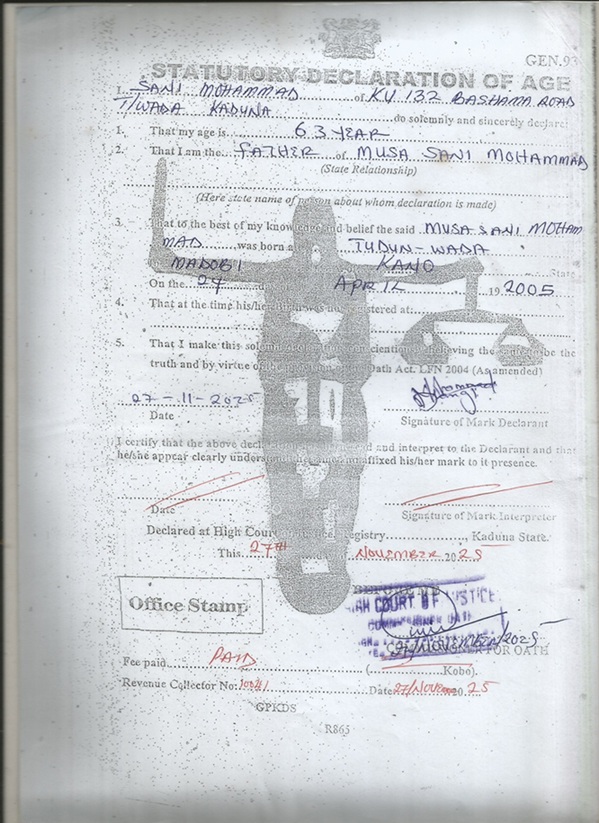 GEN.93
STATUTORY DECLARATION OF AGE
I, SANI MOHAMMAD of KU 132 BASHAMA ROAD
T/WADA KADUNA do solemnly and sincerely declare:
1. That my age is 63 YEAR
2. That I am the FATHER of MUSA SANI MOHAMMAD
(State Relationship)
(Here state name of person about whom declaration is made)
3. That to the best of my knowledge and belief the said MUSA SANI MOHAM
MAD was born at TUDUN-WADA
MADOBI KANO State
On the 24 APRIL 19 2005
4. That at the time his/her birth was not registered at
5. That I make this solemn conscientiously believing the same to be the
truth and by virtue of the Oath Act. LFN 2004 (As amended)
27-11-2025
Date Signature of Mark Declarant
I certify that the above declaration was read and interpret to the Declarant and that
he/she appear clearly understand affixed his/her mark to it presence.
Date Signature of Mark Interpreter
Declared at High Court of Justice Registry Kaduna State.
This 27TH NOVEMBER 2025
BEFORE ME
HIGH COURT OF JUSTICE
COMMISSIONER OATH
Office Stamp
27/NOVEMBER/2025
COMMISSIONER FOR OATH
Fee paid PAID ( Kobo).
Revenue Collector No: Date 27/Novem 20 25
GPKDS
R865